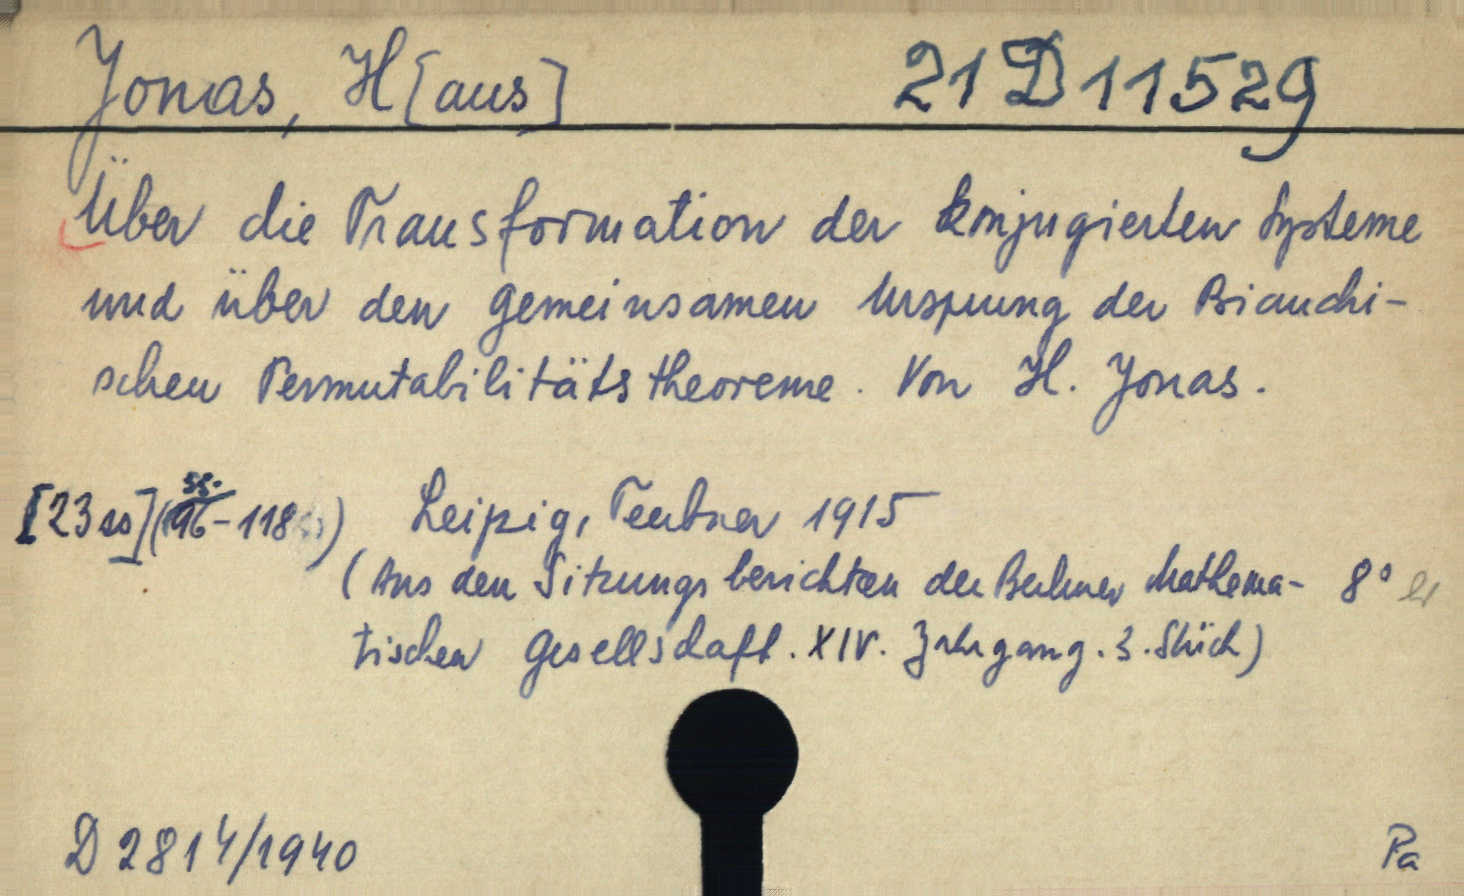 Jonas, H[aus] 21 D 11529
Über die Transformation der konjugierten Systeme
und über den gemeinsamen Ursprung der Bianchi-
schen Permutabilitätstheoreme. Von H. Jonas.
[23 ss] (96-118) Leipzig, Teubner 1915
(Aus den Sitzungsberichten der Berliner Mathema- 8°
tischen Gesellschaft. XIV. Jahrgang. 3. Stück)
D 2814/1940 Pa